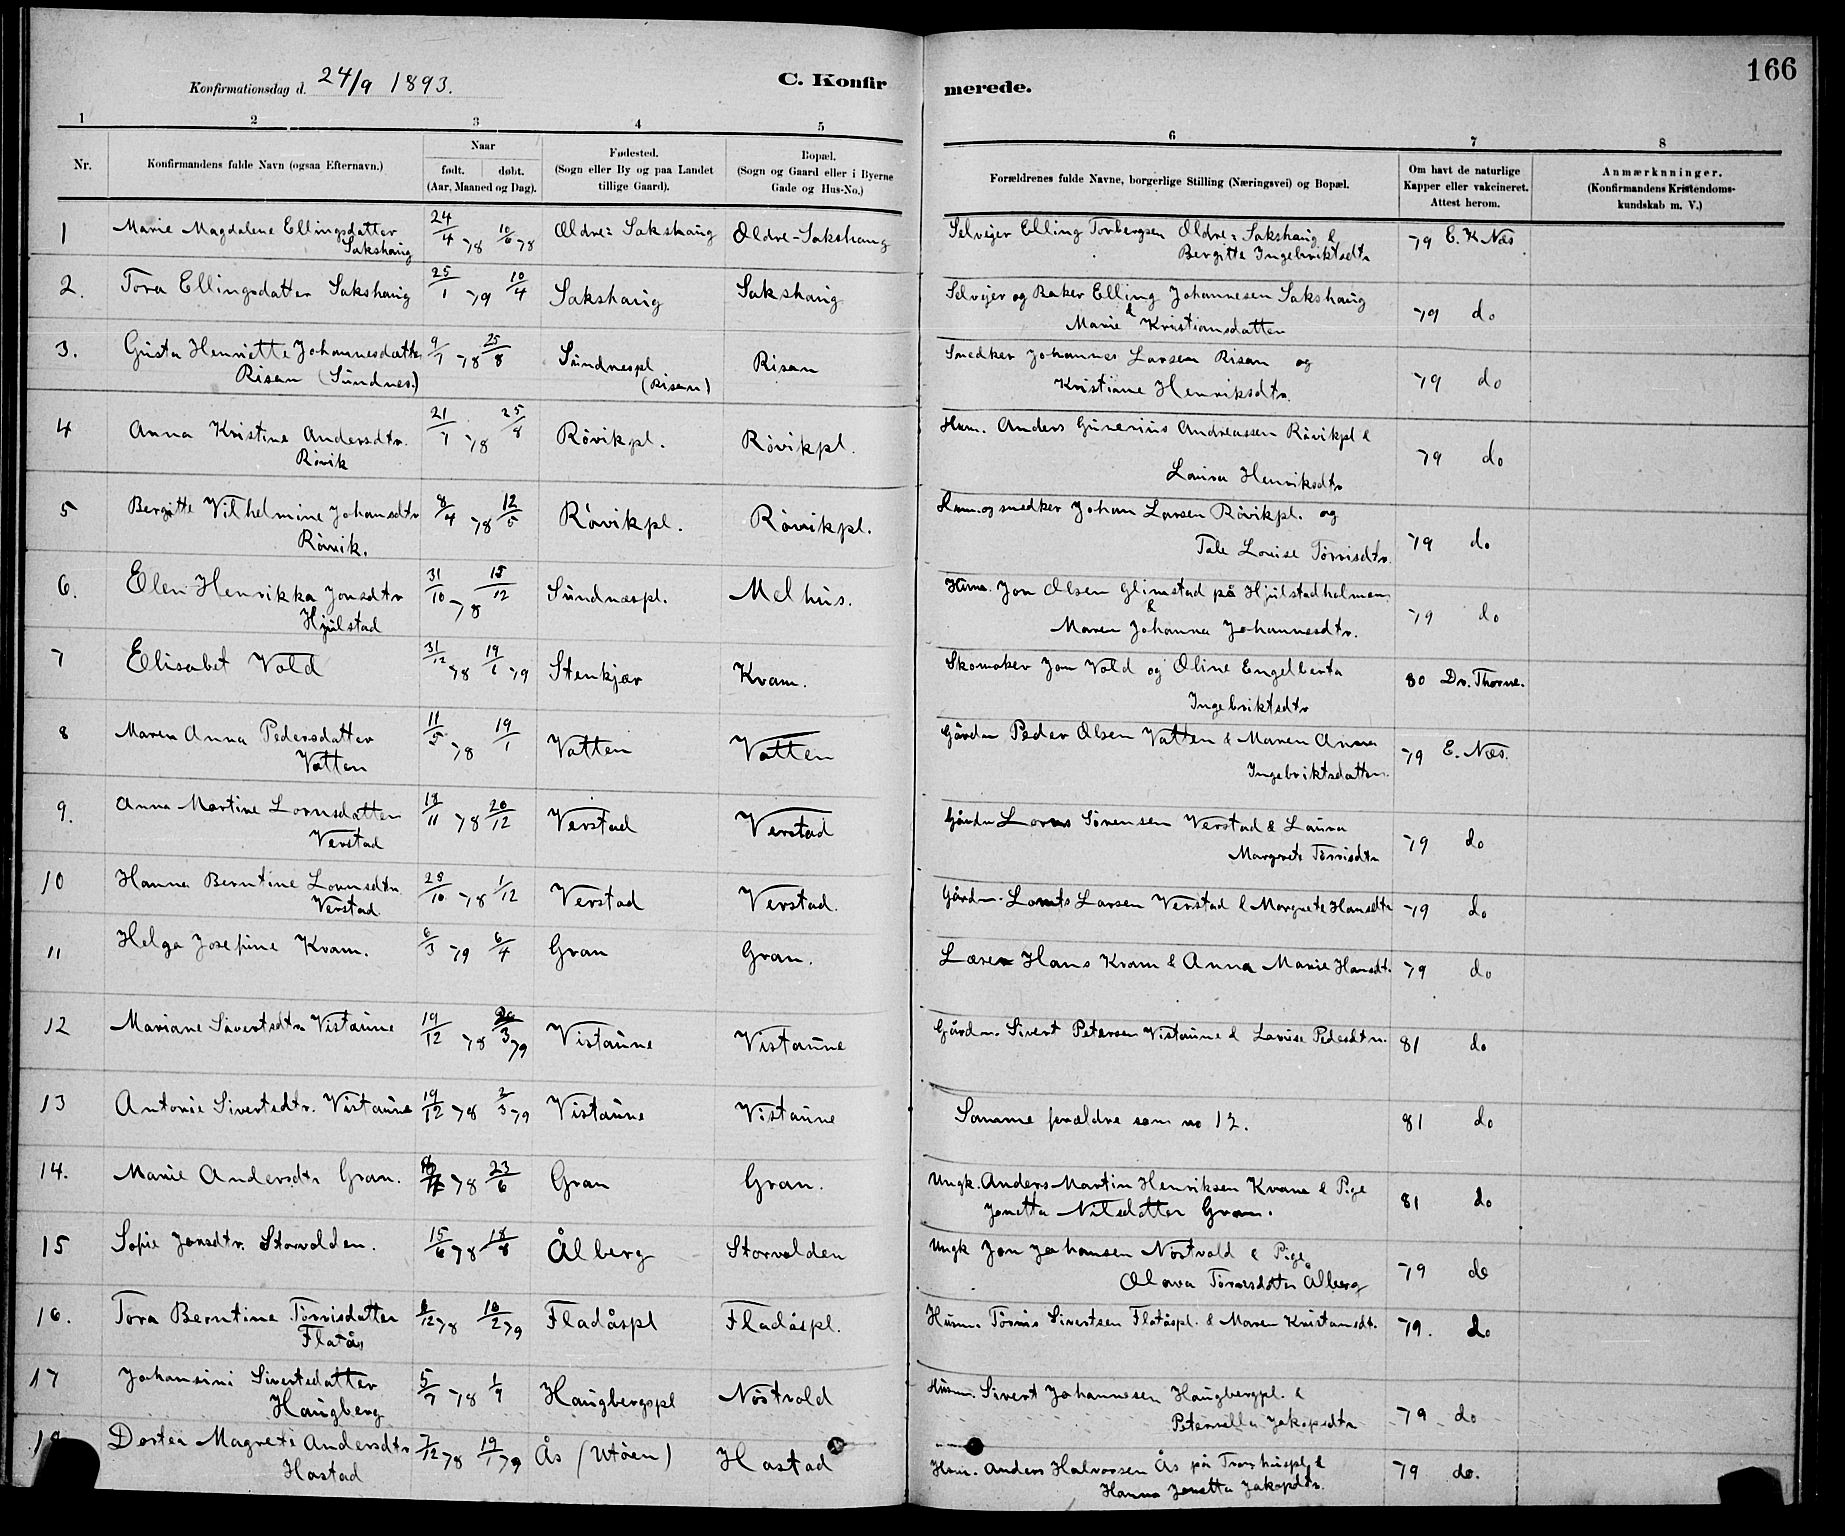 166
Konfirmationsdag d. 24/9 1893.
C. Konfirmerede.
1 2 3 4 5 6 7 8
Nr.
Konfirmandens fulde Navn (ogsaa Efternavn.)
Naar
født. døbt.
(Aar, Maaned og Dag).
Fødested.
(Sogn eller By og paa Landet
tillige Gaard).
Bopæl.
(Sogn og Gaard eller i Byerne
Gade og Hus-No.)
Forældrenes fulde Navne, borgerlige Stilling (Næringsvei) og Bopæl.
Om havt de naturlige
Kapper eller vakcineret.
Attest herom.
Anmærknninger.
(Konfirmandens Kristendoms-
kundskab m. V.)
1 Marie Magdalene Ellingsdatter 24/4 78 10/6 78 Øldre= Sakshaug Øldre-Sakshaug Selveier Elling Torbergsen Øldre= Sakshaug & 79 E. K Næs
Sakshaug Bergitte Ingebriktsdtr
2. Tora Ellingsdatter Sakshaug 25/1 79 10/4 Sakshaug Sakshaug Selvejer og Baker Elling Johannesen Sakshaug 79 do
& Marie Kristiansdatter
3. Gusta Henriette Johannesdatter 9/7 78 25/8 Sundnespl Risan Snedker Johannes Larsen Risan og 79 do
Risan (Sundnes.) (Risan) Kristiane Henriksdtr.
4 Anna Kristine Andersdtr. 21/7 78 25/8 Røvikpl. Røvikpl. Husm. Anders Gunerius Andreassen Røvikpl & 79 do
Røvik Laura Henriksdtr
5 Bergitte Vilhelmine Johansdtr 8/4 78 12/5 Røvikpl. Røvikpl. Husm. og snedker Johan Larsen Røvikpl. og 79 do
Røvik. Tale Louise Tørrisdtr.
6. Elen Henrikka Jonsdtr 31/10 78 15/12 Sundnæspl. Melhus. Husm. Jon Olsen Glimstad på Hjulstadholmen 79 do
Hjulstad & Maren Johanna Johannesdtr.
7 Elisabet Vold 31/12 78 19/1 79 Stenkjær Kvam. Skomaker Jon Vold og Oline Engelberta 80 Dr. Thorne.
Ingebriktsdtr
8 Maren Anna Pedersdatter 11/5 78 19/1 Vatten Vatten Gårdm Peder Olsen Vatten & Maren Anna 79 E. Næs.
Vatten Ingebriktsdatter.
9. Anna Martine Lornsdatter 18/11 78 20/12 Verstad Verstad Gårdm Lorns Sørensen Verstad & Laura 79 do
Verstad Margrete Tørrisdtr
10 Hanna Berntine Lornsdtr. 28/10 78 1/12 Verstad Verstad. Gårdm. Lornts Larsen Verstad & Margrete Hansdtr 79 do
Verstad
11 Helga Josefine Kvam. 6/3 79 6/4 Gran Gran. Lærer Hans Kvam & Anna Marie Hansdt. 79 do
12 Mariane Sivertsdtr Vistaune 19/12 78 3 79 Vistaune Vistaune Gårdm. Sivert Petersen Vistaune & Lovise Pedesdtr. 81 do
13 Antonie Sivertsdtr. Vistaune 19/12 78 2/3 79 Vistaune Vistaune Samme forældre som no 12. 81 do
14. Marie Andersdtr Gran. 78 23/6 Gran Gran. Ungk. Anders Martin Henriksen Kvam & Pige 81 do
Jonetta Nilsdatter Gran.
15 Sofie Jonsdtr. Storvolden. 15/6 78 18/8 Ålberg Storvolden Ungk Jon Johansen Nøstvold & Pige 79 do
Olava Tørrisdatter Ålberg
16. Tora Berntine Tørrisdatter 8/12 78 10/2 79 Fladåspl Fladåspl. Husm. Tørris Sivertsen Flatåspl. & Maren Kristansdt. 79. do
Flatås
17 Johansini Sivertsdatter 5/7 78 1/9 Haugbergspl Nøstvold Husm. Sivert Johannesen Haugbergpl. & 79 do
Haugberg Peternella Jakopsdtr
18 Dortea Magrete Andersdtr 7/12 78 19/1 79 Ås (Utøen) Hastad Husm. Anders Halvorsen Ås på & 79 do.
Hastad Hanna Jonetta Jakopdtr.